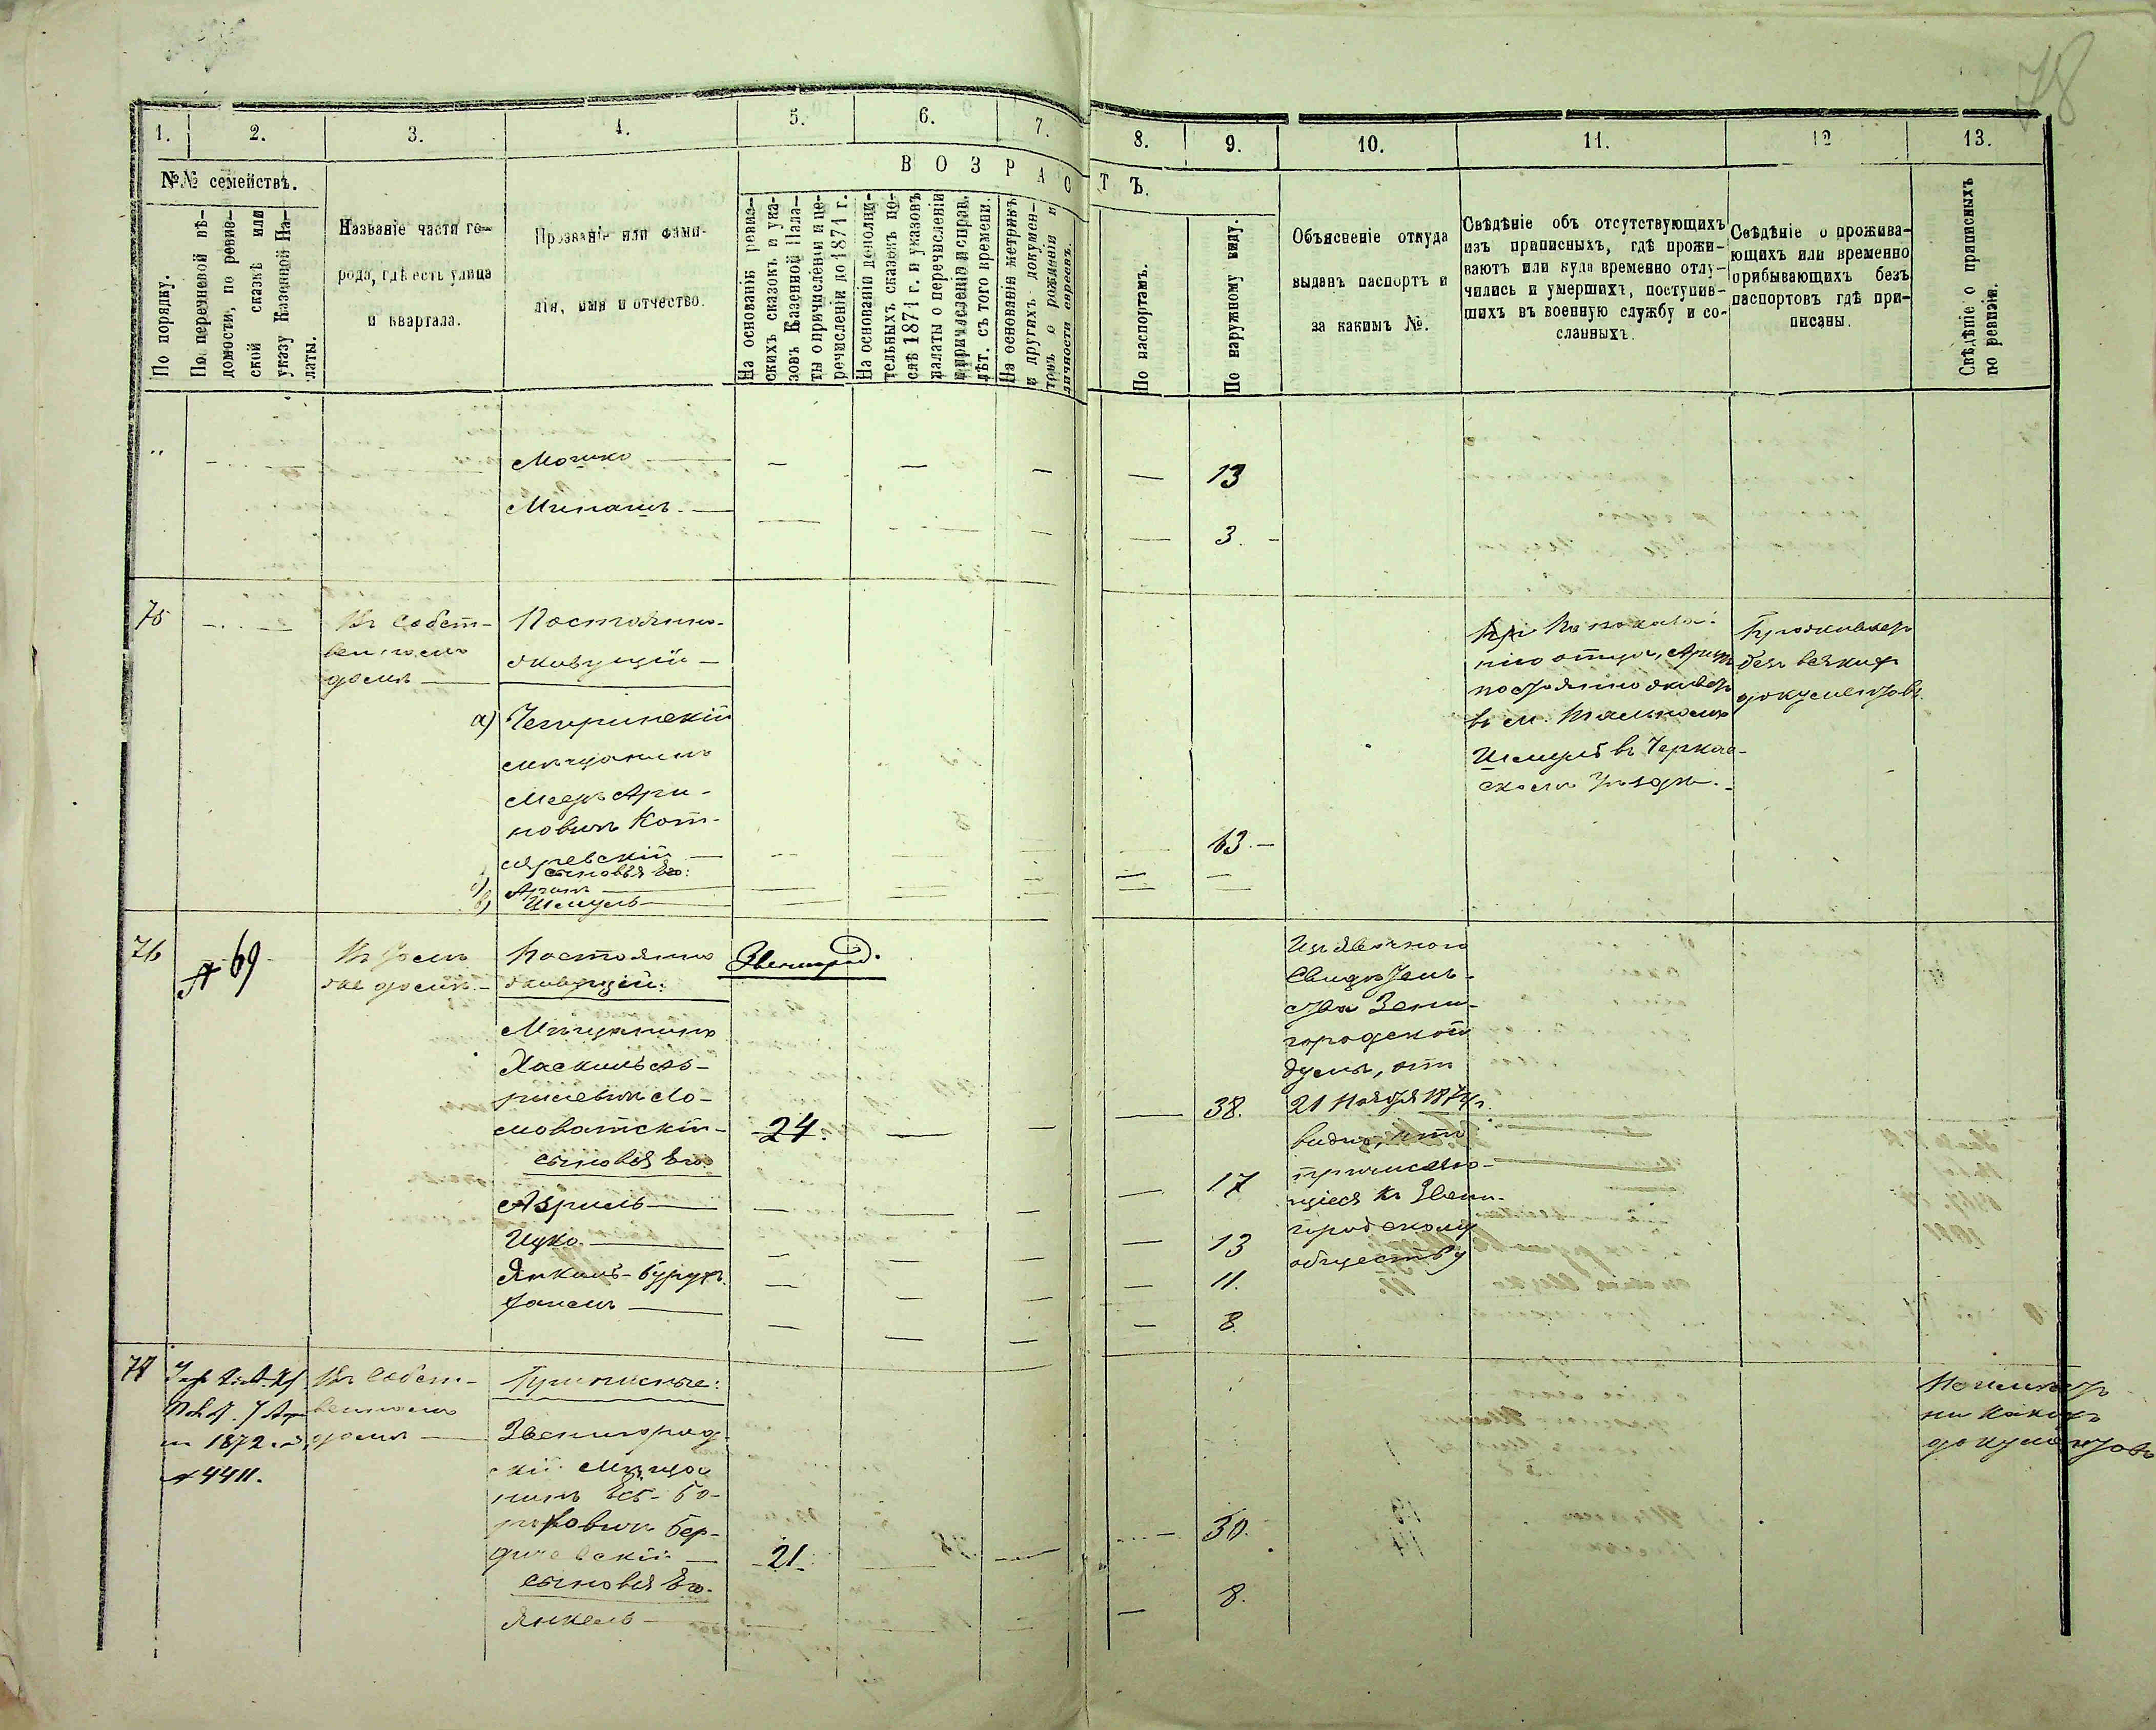 78
1. 2. 3. 4. 5. 6. 7. 8. 9. 10. 11. 12 13.
№№ семействъ.
По порядку.
По перечневой вѣ-
домости, по ревиз-
ской сказкѣ или
указу Казенной Па-
латы.
Названіе части го-
рода, гдѣ есть улица
и квартала.
Прозваніе или фами-
лія, имя и отчество.
ВОЗРАСТЪ.
На основаніи ревиз-
скихъ сказокъ и ука-
зовъ Казенной Пала-
ты о причисленіи и пе-
речисленіи до 1874 г.
На основаніи дополни-
тельныхъ сказокъ по-
слѣ 1874 г. и указовъ
палаты о перечисленіи
и причисленіи и справ.
лѣт. съ того времени.
На основаніи метрикъ
и другихъ докумен-
товъ о рожденіи и
личности евреевъ.
По паспортамъ.
По наружному виду.
Объясненіе откуда
выданъ паспортъ и
за какимъ №.
Свѣдѣніе объ отсутствующихъ
изъ приписныхъ, гдѣ прожи-
ваютъ или куда временно отлу-
чились и умершихъ, поступив-
шихъ въ военную службу и со-
сланныхъ.
Свѣдѣніе о прожива-
ющихъ или временно
прибывающихъ безъ
паспортовъ гдѣ при-
писаны.
Свѣдѣніе о приписныхъ
по ревизіи.
Мошко — 13
3.
75
Въ собст-
венномъ
домѣ
Постоянно-
живущій
а) Чегиринскій
мѣщанинъ
Мееръ Аро-
новичъ Кот-
ляревскій — 63.
сыновья Его:
б) Аронъ
в) Шмуль
По показа-
нію отца, Аронъ
постоянно живетъ
въ м. Тальномъ
Шмуль въ Черкас-
скомъ Уѣздѣ.
Проживаетъ
безъ всякихъ
документовъ.
76
№ 69
Въ томъ
же домѣ.
Постоянно
живущій:
Звенигород.
Мѣщанинъ
Хаскиль
24. — 38.
сыновья Его
Азриль — 17
Ицко — 13
Янкель-Бурухъ. — 11.
8.
Изъ явочнаго
Свидѣтель-
ства Звени-
городской
Думы, отъ
21 1874 г.
видно, что
къ Звени-
городскому
обществу
77
1872 г. за
№ 4411.
Въ собст-
венномъ
домѣ
Приписные:
Звенигород-
скій Мѣща-
нинъ
Бер-
дичевскій — 21. — 30.
сыновья Его.
Янкель — 8.
Неимѣетъ
ни какихъ
документовъ